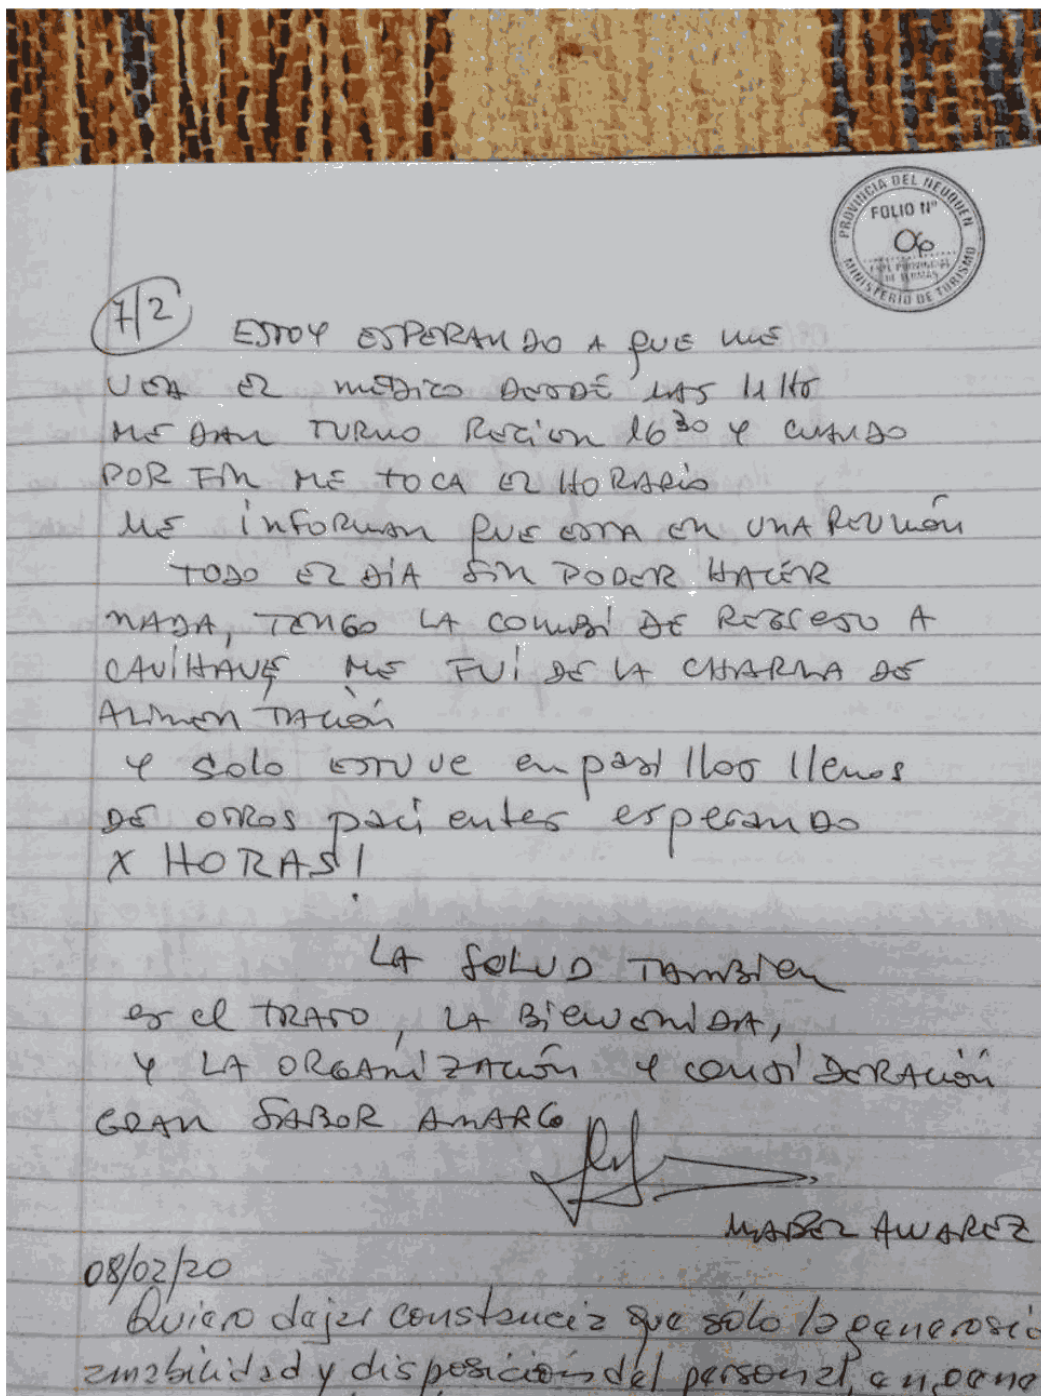 PROVINCIA DEL NEUQUEN
FOLIO N°
06
ENTE PROVINCIAL
DE TERMAS
MINISTERIO DE TURISMO
7/2
ESTOY ESPERANDO A QUE ME
VEA EL MÉDICO DESDE LAS 11 HS
ME DAN TURNO RECIEN 16 30 Y CUANDO
POR FIN ME TOCA EL HORARIO
ME INFORMAN QUE ESTA EN UNA REUNIÓN
TODO EL DÍA SIN PODER HACER
NADA, TENGO LA COMBI DE REGRESO A
CAVIHAUE ME FUÍ DE LA CHARLA DE
ALIMENTACIÓN
Y SOLO ESTUVE en pasillos llenos
DE OTROS pacientes esperando
X HORAS!
LA SALUD TAMBIEN
es el TRATO, LA BIENVENIDA,
Y LA ORGANIZACIÓN Y CONSIDERACIÓN
GRAN SABOR AMARGO
MABEL ALVAREZ
08/02/20
Quiero dejar constancia que sólo la generosid
amabilidad y disposición del personal, en gene